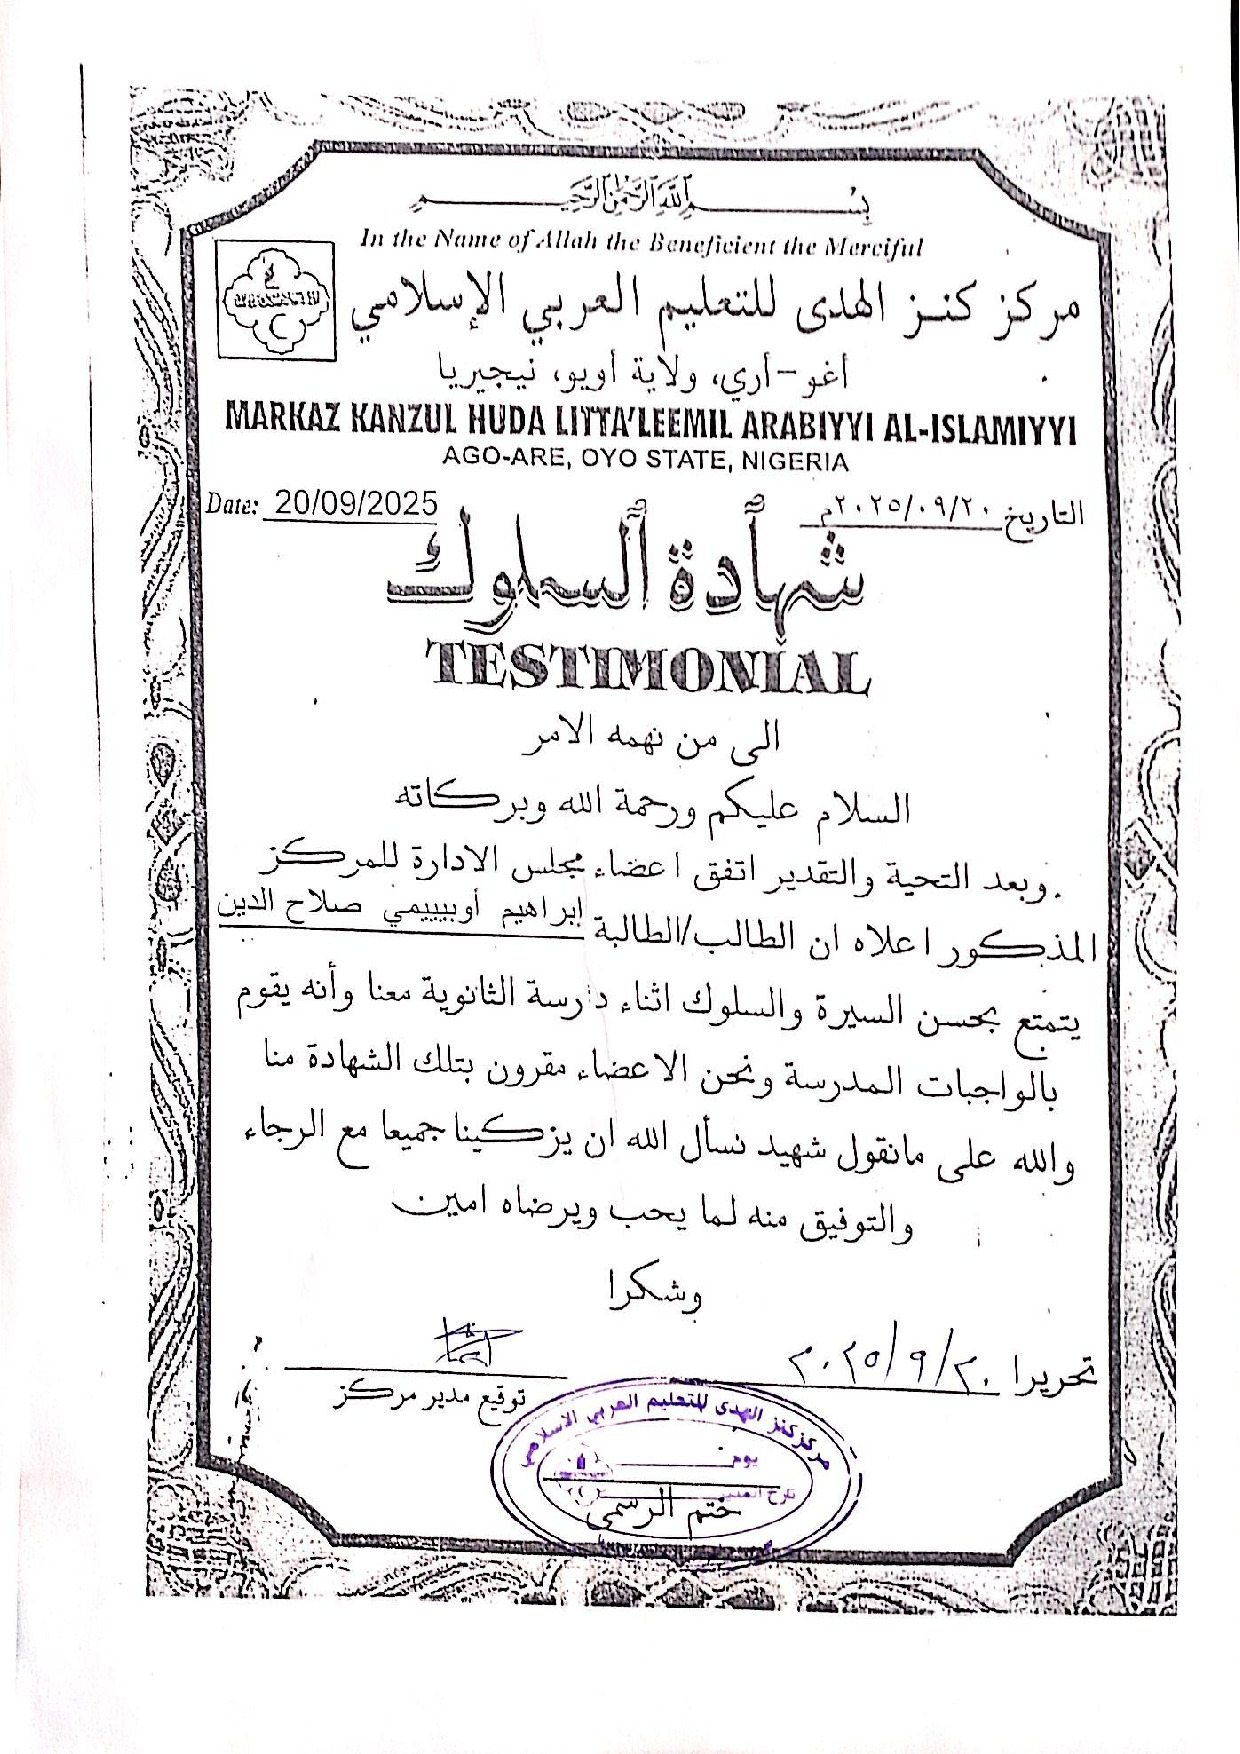 بسم الله الرحمن الرحيم
In the Name of Allah the Beneficient the Merciful
مركز كنز الهدى للتعليم العربي الإسلامي
أغو-أري، ولاية أويو، نيجيريا
MARKAZ KANZUL HUDA LITTA'LEEMIL ARABIYYI AL-ISLAMIYYI
AGO-ARE, OYO STATE, NIGERIA
التاريخ ٢٠٢٥/٠٩/٢٠م
Date: 20/09/2025
شهادة السلوك
TESTIMONIAL
الى من تهمه الامر
السلام عليكم ورحمة الله وبركاته
وبعد التحية والتقدير اتفق اعضاء مجلس الادارة للمركز
المذكور اعلاه ان الطالب/الطالبة إبراهيم أوبييمي صلاح الدين
يتمتع بحسن السيرة والسلوك اثناء دارسة الثانوية معنا وأنه يقوم
بالواجبات المدرسة ونحن الاعضاء مقرون بتلك الشهادة منا
والله على مانقول شهيد نسأل الله ان يزكينا جميعا مع الرجاء
والتوفيق منه لما يحب ويرضاه امين
وشكرا
تحريرا ٢٠٢٥/٩/٢٠
توقيع مدير مركز
مركز كنز الهدى للتعليم العربي الاسلامي
يوم
ختم الرسمى